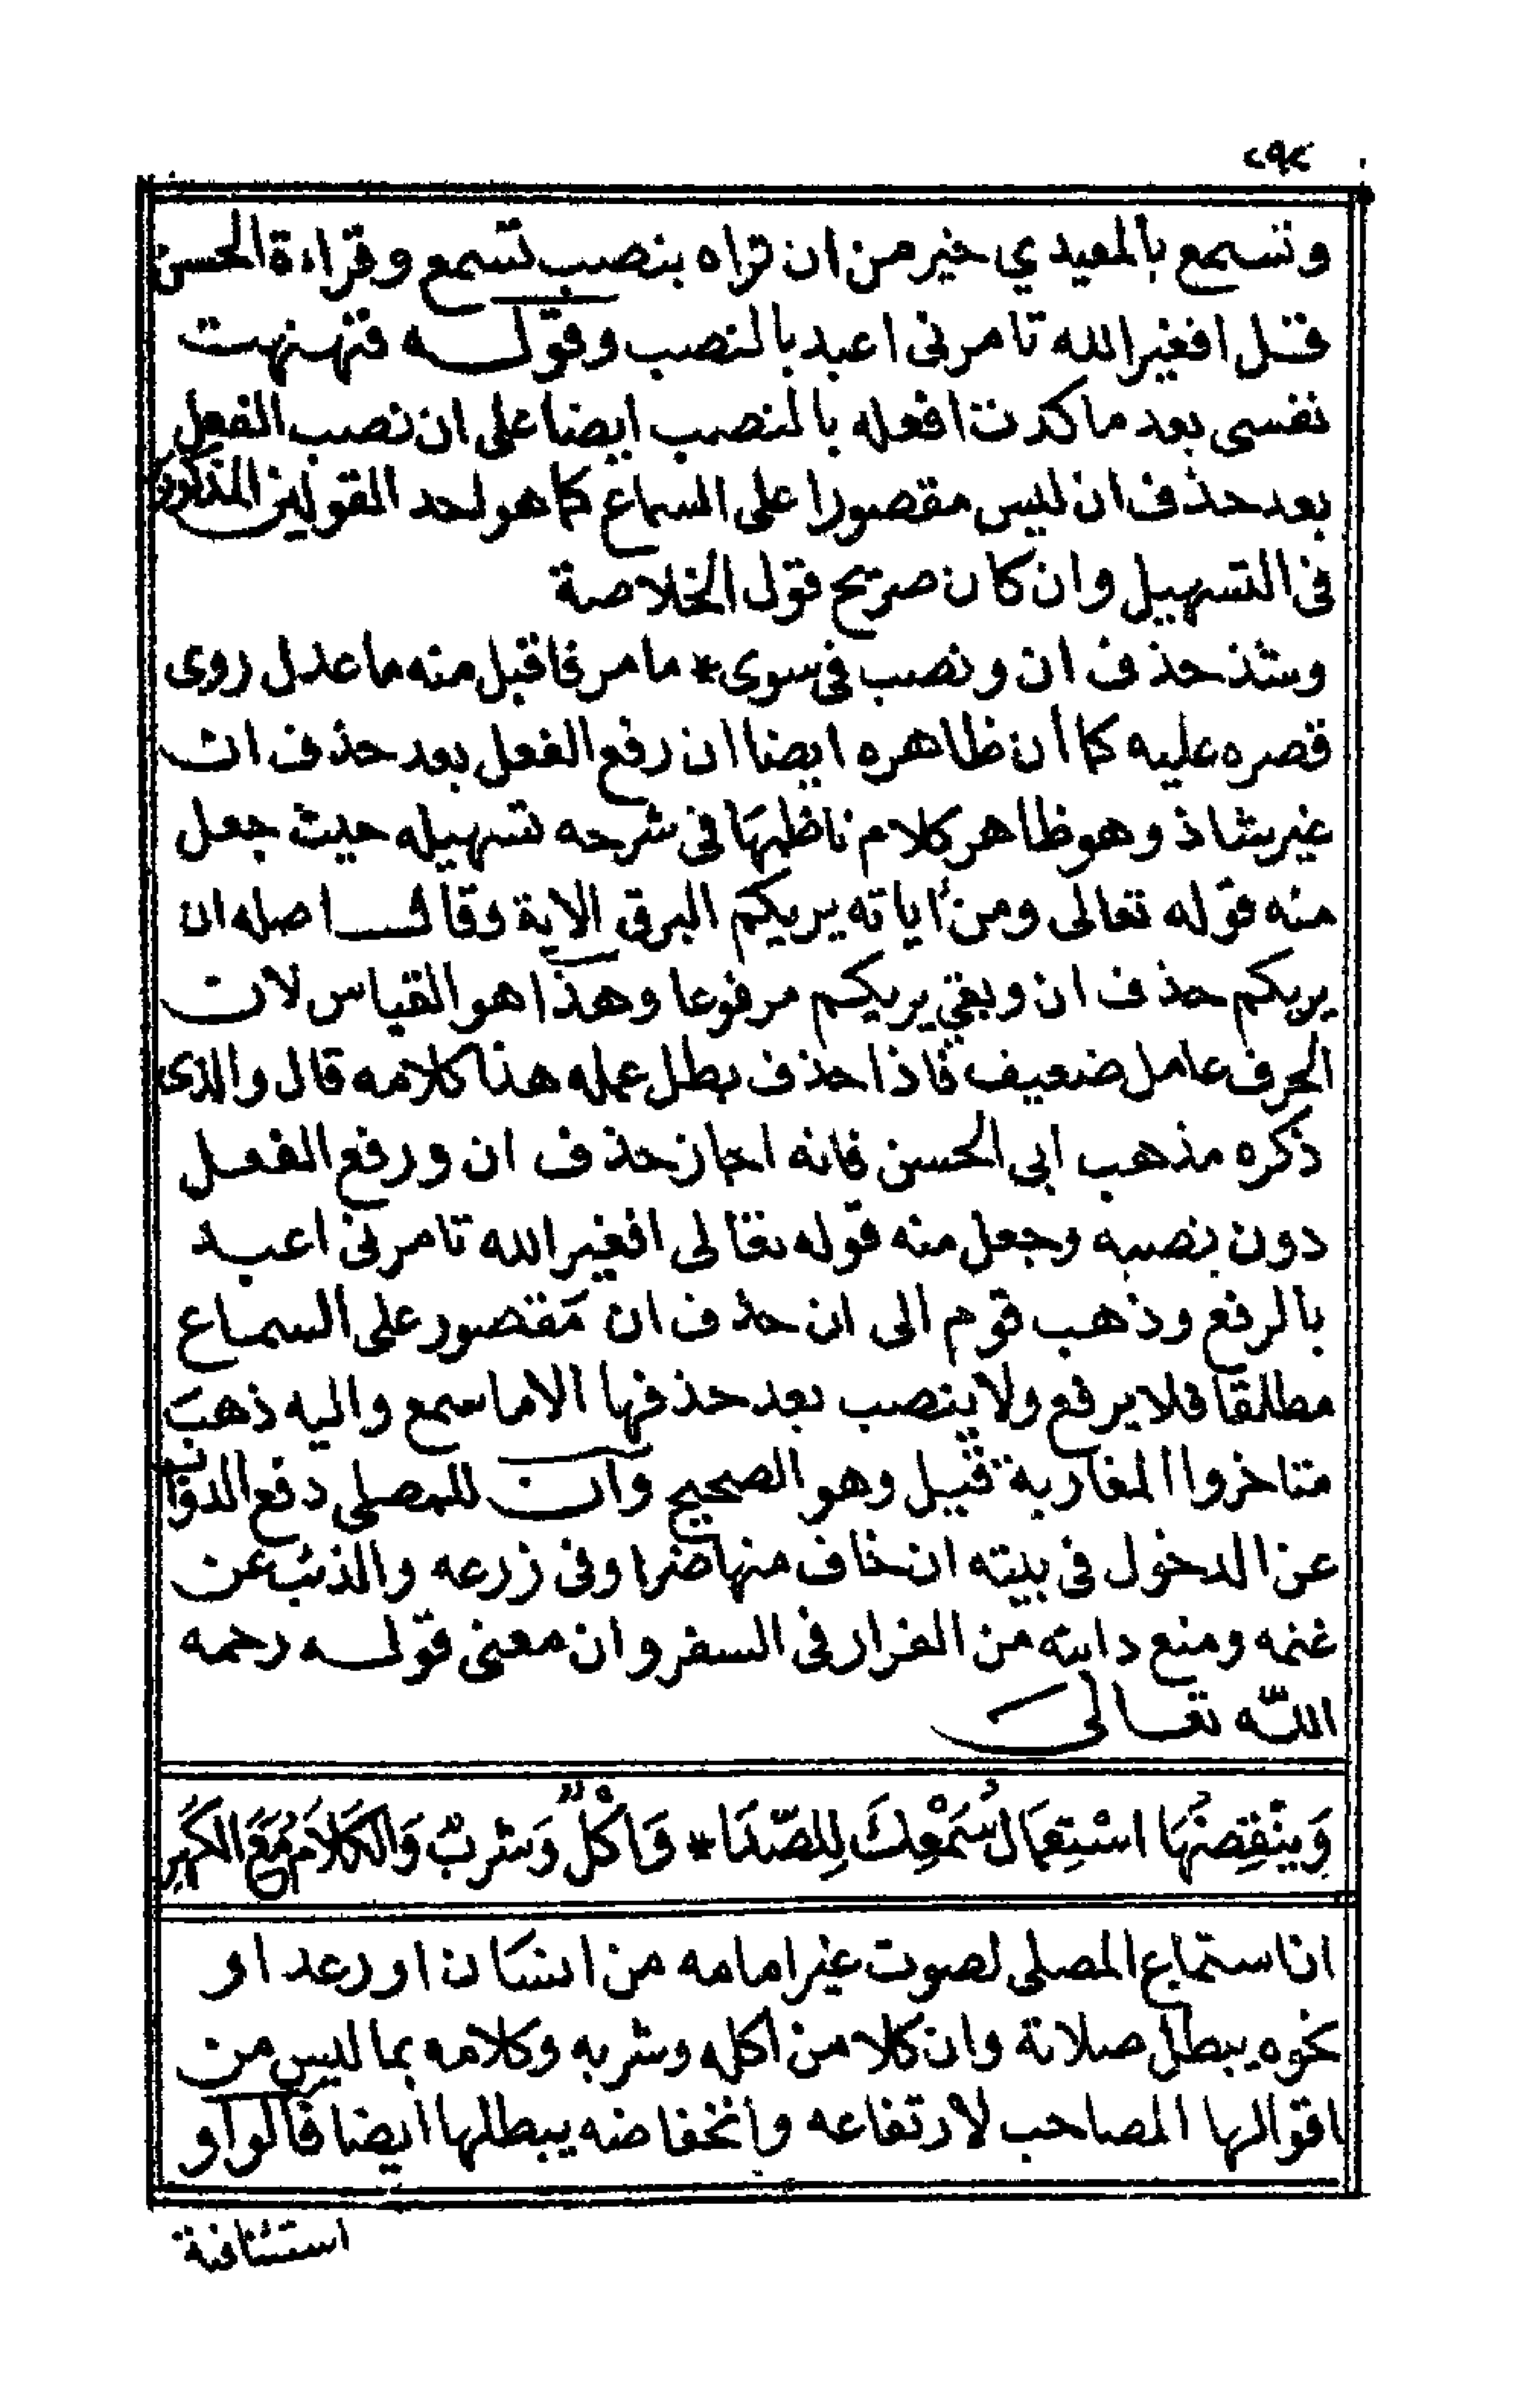 ٢٩٢
وتسمع بالمعيدي خير من ان تراه بنصب تسمع وقراءة الحسن
قل افغير الله تامرنى اعبد بالنصب وقوله فنهنهت
نفسى بعد ما كدت افعله بالنصب ايضا على ان نصب الفعل
بعد حذف ان ليس مقصورا على السماع كما هو احد القولين المذكورين
فى التسهيل وان كان صريح قول الخلاصة
وشذ حذف ان ونصب فى سوى * ما مر فاقبل منه ما عدل روى
قصره عليه كما ان ظاهره ايضا ان رفع الفعل بعد حذف ان
غير شاذ وهو ظاهر كلام ناظمها فى شرحه تسهيله حيث جعل
منه قوله تعالى ومن اياته يريكم البرق الاية وقال اصله ان
يريكم حذف ان وبقي يريكم مرفوعا وهذا هو القياس لان
الحرف عامل ضعيف فاذا حذف بطل عمله هذا كلامه قال والذى
ذكره مذهب ابى الحسن فانه اجاز حذف ان ورفع الفعل
دون نصبه وجعل منه قوله تعالى افغير الله تامرنى اعبد
بالرفع وذهب قوم الى ان حذف ان مقصور على السماع
مطلقا فلا يرفع ولا ينصب بعد حذفها الا ما سمع واليه ذهب
متاخروا المغاربة قيل وهو الصحيح وان للمصلى دفع الدواب
عن الدخول فى بيته ان خاف منها ضرا وفى زرعه والذئب عن
غنمه ومنع دابته من الفرار فى السفر وان معنى قوله رحمه
اللّه تعالى
وَيَنْقِضُهَا اسْتِعْمَال سَمْعِكَ لِلصَّدَا * وَاكْلٌ وَشربٌ وَالكَلَامُ مَعَ الكِبَر
ان استماع المصلى لصوت غير امامه من انسان او رعد او
نحوه يبطل صلاته وان كلا من اكله وشربه وكلامه بما ليس من
اقوالها المصاحب لارتفاعه وانخفاضه يبطلها ايضا قالوا او
استئنافية